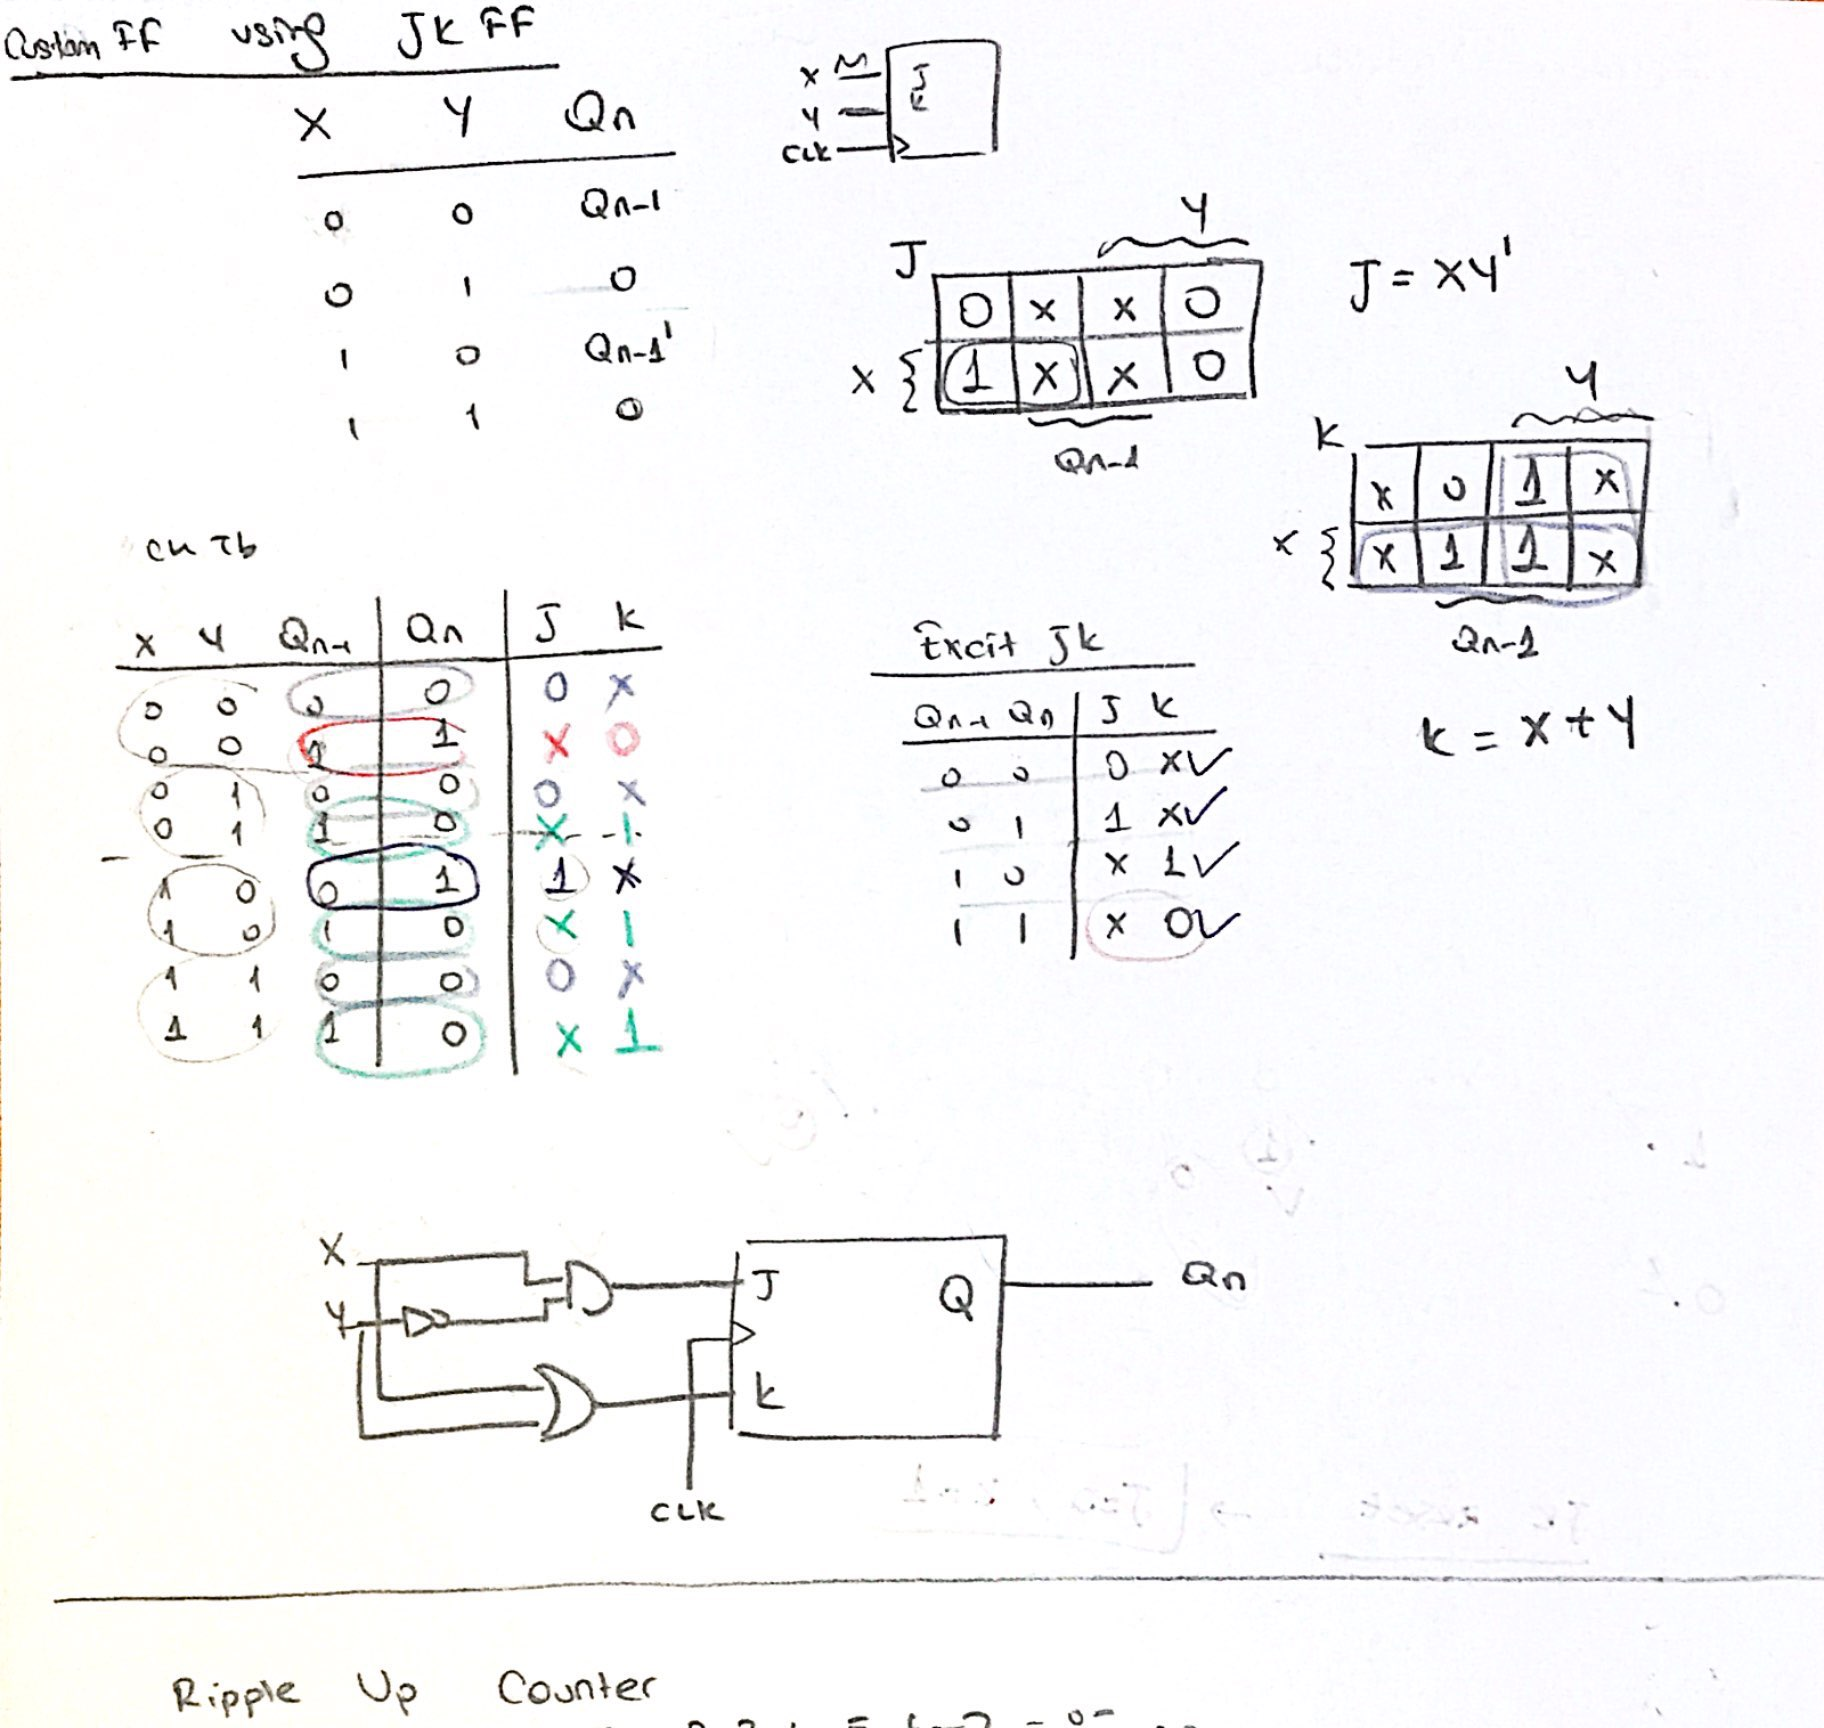 Custom FF using JK FF
X Y Qn
0 0 Qn-1
0 1 0
1 0 Qn-1'
1 1 0
X
Y
CLK
J
K
Y
J
0 x x 0
X { 1 x x 0
Qn-1
J = XY'
Y
K
x 0 1 x
X { x 1 1 x
Qn-1
K = X + Y
CH Tb
X Y Qn-1 Qn J K
0 0 0 0 0 X
0 0 1 1 X 0
0 1 0 0 0 X
0 1 1 0 X 1
1 0 0 1 1 X
1 0 1 0 X 1
1 1 0 0 0 X
1 1 1 0 X 1
Excit JK
Qn-1 Qn J K
0 0 0 X✓
0 1 1 X✓
1 0 X 1✓
1 1 X 0✓
X
Y
J Q Qn
K
CLK
Ripple Up Counter